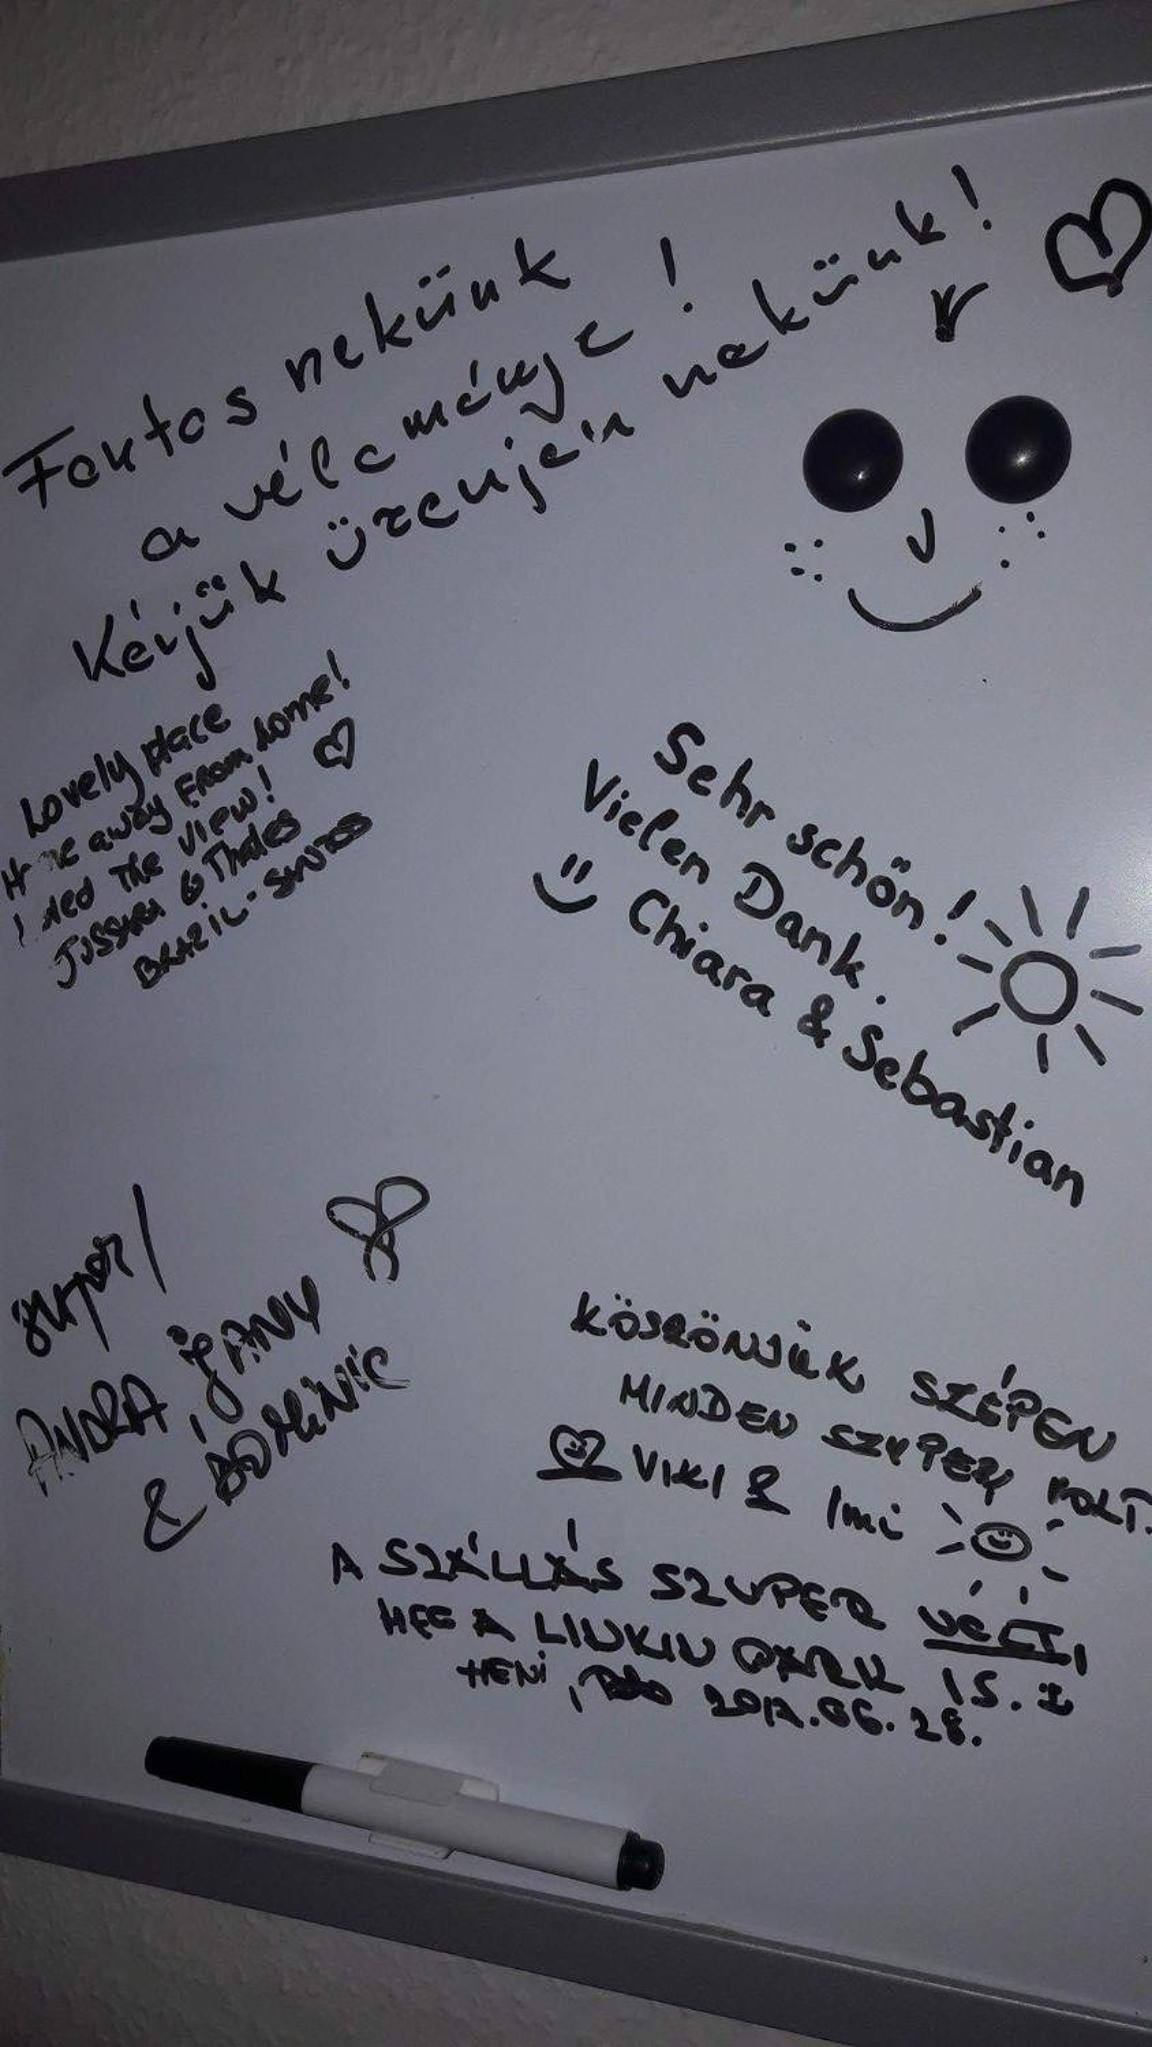 Fontos nekünk
a véleménye!
Kérjük üzenjen nekünk!
Lovely place
Home away from home!
I liked the view!
Jussara & Thales
BRAZIL-SANTOS
Sehr schön!
Vielen Dank.
Chiara & Sebastian
super!
ANDRA, JANY
& DOMINIC
KÖSZÖNJÜK SZÉPEN
MINDEN SZUPER VOLT.
VIKI & Imi
A SZÁLLÁS SZUPER VOLT,
MEG A LINKIN PARK IS.
HENI, 2017.06.28.